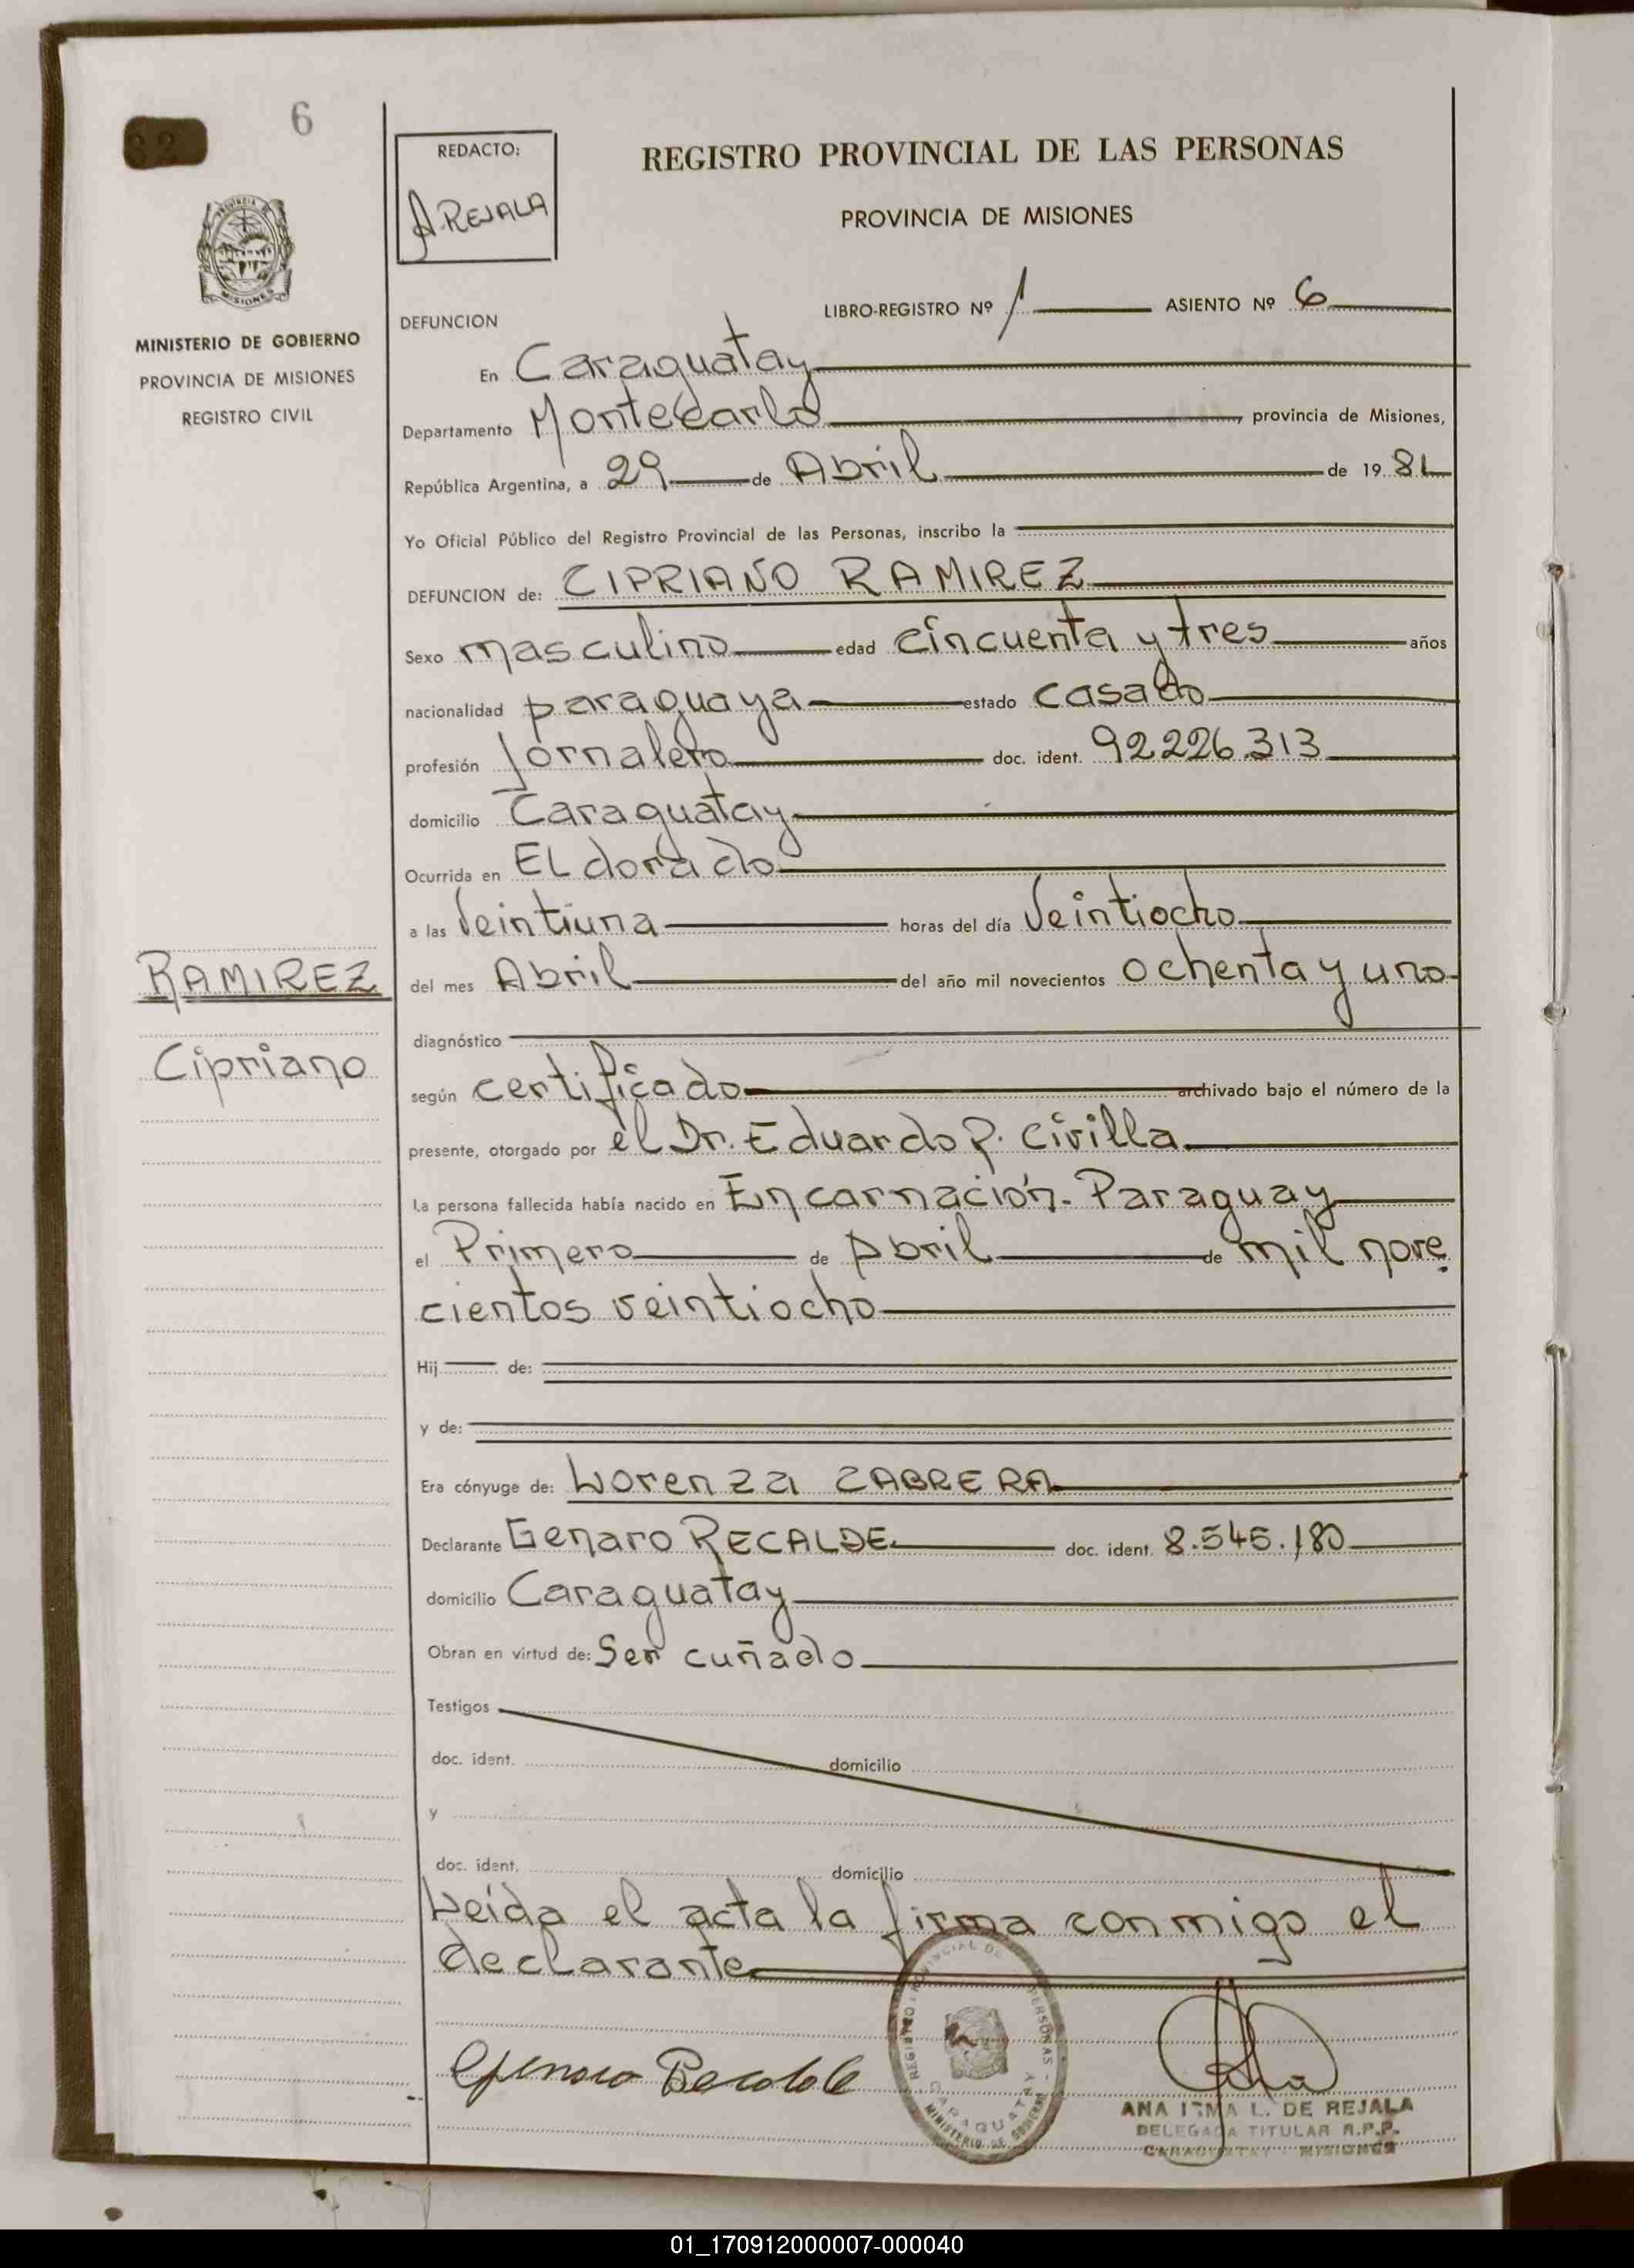 6
REDACTO:
A. REJALA
REGISTRO PROVINCIAL DE LAS PERSONAS
PROVINCIA DE MISIONES
MISIONES
MINISTERIO DE GOBIERNO
PROVINCIA DE MISIONES
REGISTRO CIVIL
LIBRO-REGISTRO Nº 1 ASIENTO Nº 6
DEFUNCION
En Caraguatay
Departamento Montecarlo provincia de Misiones,
República Argentina, a 29 de Abril de 19 81
Yo Oficial Público del Registro Provincial de las Personas, inscribo la
DEFUNCION de: CIPRIANO RAMIREZ
Sexo masculino edad cincuenta y tres años
nacionalidad paraguaya estado casado
profesión Jornalero doc. ident. 92226.313
domicilio Caraguatay
Ocurrida en ELdorado
a las Veintiuna horas del día Veintiocho
del mes Abril del año mil novecientos ochenta y uno
RAMIREZ
Cipriano
diagnóstico
según certificado archivado bajo el número de la
presente, otorgado por el Dr. Eduardo P. Civilla
La persona fallecida había nacido en Encarnación - Paraguay
el Primero de Abril de mil nove
cientos veintiocho
Hij de:
y de:
Era cónyuge de: Lorenza CABRERA
Declarante Genaro RECALDE doc. ident. 8.545.180
domicilio Caraguatay
Obran en virtud de: Ser cuñado
Testigos
doc. ident. domicilio
y
doc. ident. domicilio
Leída el acta la firma conmigo el
declarante
Genaro Recalde
REGISTRO PROVINCIAL DE PERSONAS - CARAGUATAY MINISTERIO DE GOBIERNO
ANA IRMA L. DE REJALA
DELEGADA TITULAR R.P.P.
CARAGUATAY - MISIONES
01_170912000007-000040